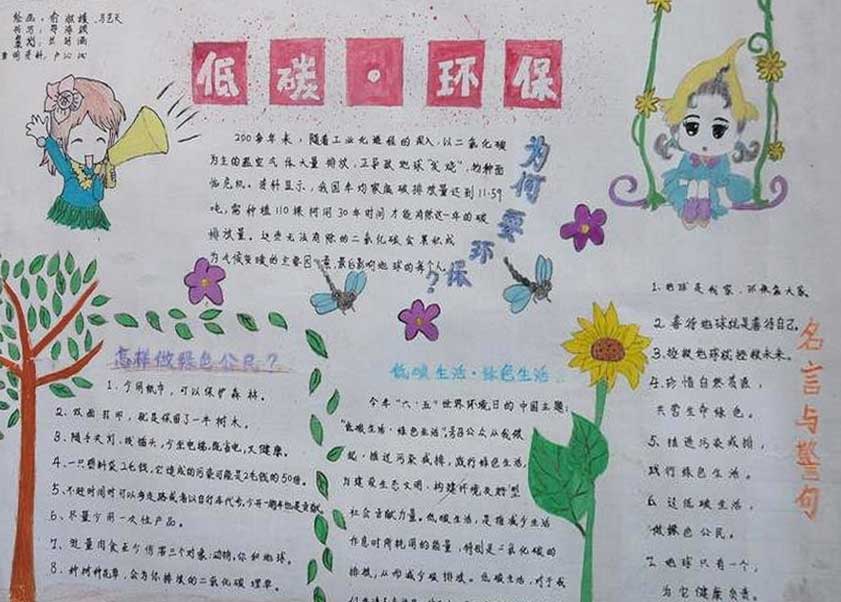 绘画：俞淑媛、马艺天
低碳·环保
为何要环保？
200多年来，随着工业化进程的深入，以二氧化碳
为主的温室气体大量排放，正导致地球“发烧”，物种面
临危机。资料显示，我国年均家庭碳排放量达到11.59
吨，需种植110棵树用30年时间才能消除这一年的碳
排放量。这些无法消除的二氧化碳会累积成
为气候变暖的主要因素，最后影响地球的每个人。
怎样做绿色公民？
1、少用纸巾，可以保护森林。
2、双面打印，就是保留了一半树木。
3、随手关灯、拔插头，少坐电梯，既省电，又健康。
4、一只塑料袋2毛钱，它造成的污染可能是2毛钱的50倍。
5、不赶时间时可以步走路或者以自行车代步，少开一周车也是贡献。
6、尽量少用一次性产品。
7、过量肉食至少伤害三个对象：动物，你和地球。
8、种树种花草，会为你排放的二氧化碳埋单。
低碳生活·绿色生活
今年“六·五”世界环境日的中国主题：
“低碳生活·绿色生活”，号召公众从我做
起，推进污染减排，践行绿色生活，
为建设生态文明，构建环境友好型
社会贡献力量。低碳生活，是指减少生活
作息时所耗用的能量，特别是二氧化碳的
排放，从而减少碳排放。低碳生活，对于我
名言与警句
1、地球是我家，环保靠大家。
2、善待地球就是善待自己。
3、拯救地球就拯救未来。
4、珍惜自然资源，
共营生命绿色。
5、推进污染减排，
践行绿色生活。
6、过低碳生活，
做绿色公民。
7、地球只有一个，
为它健康负责。